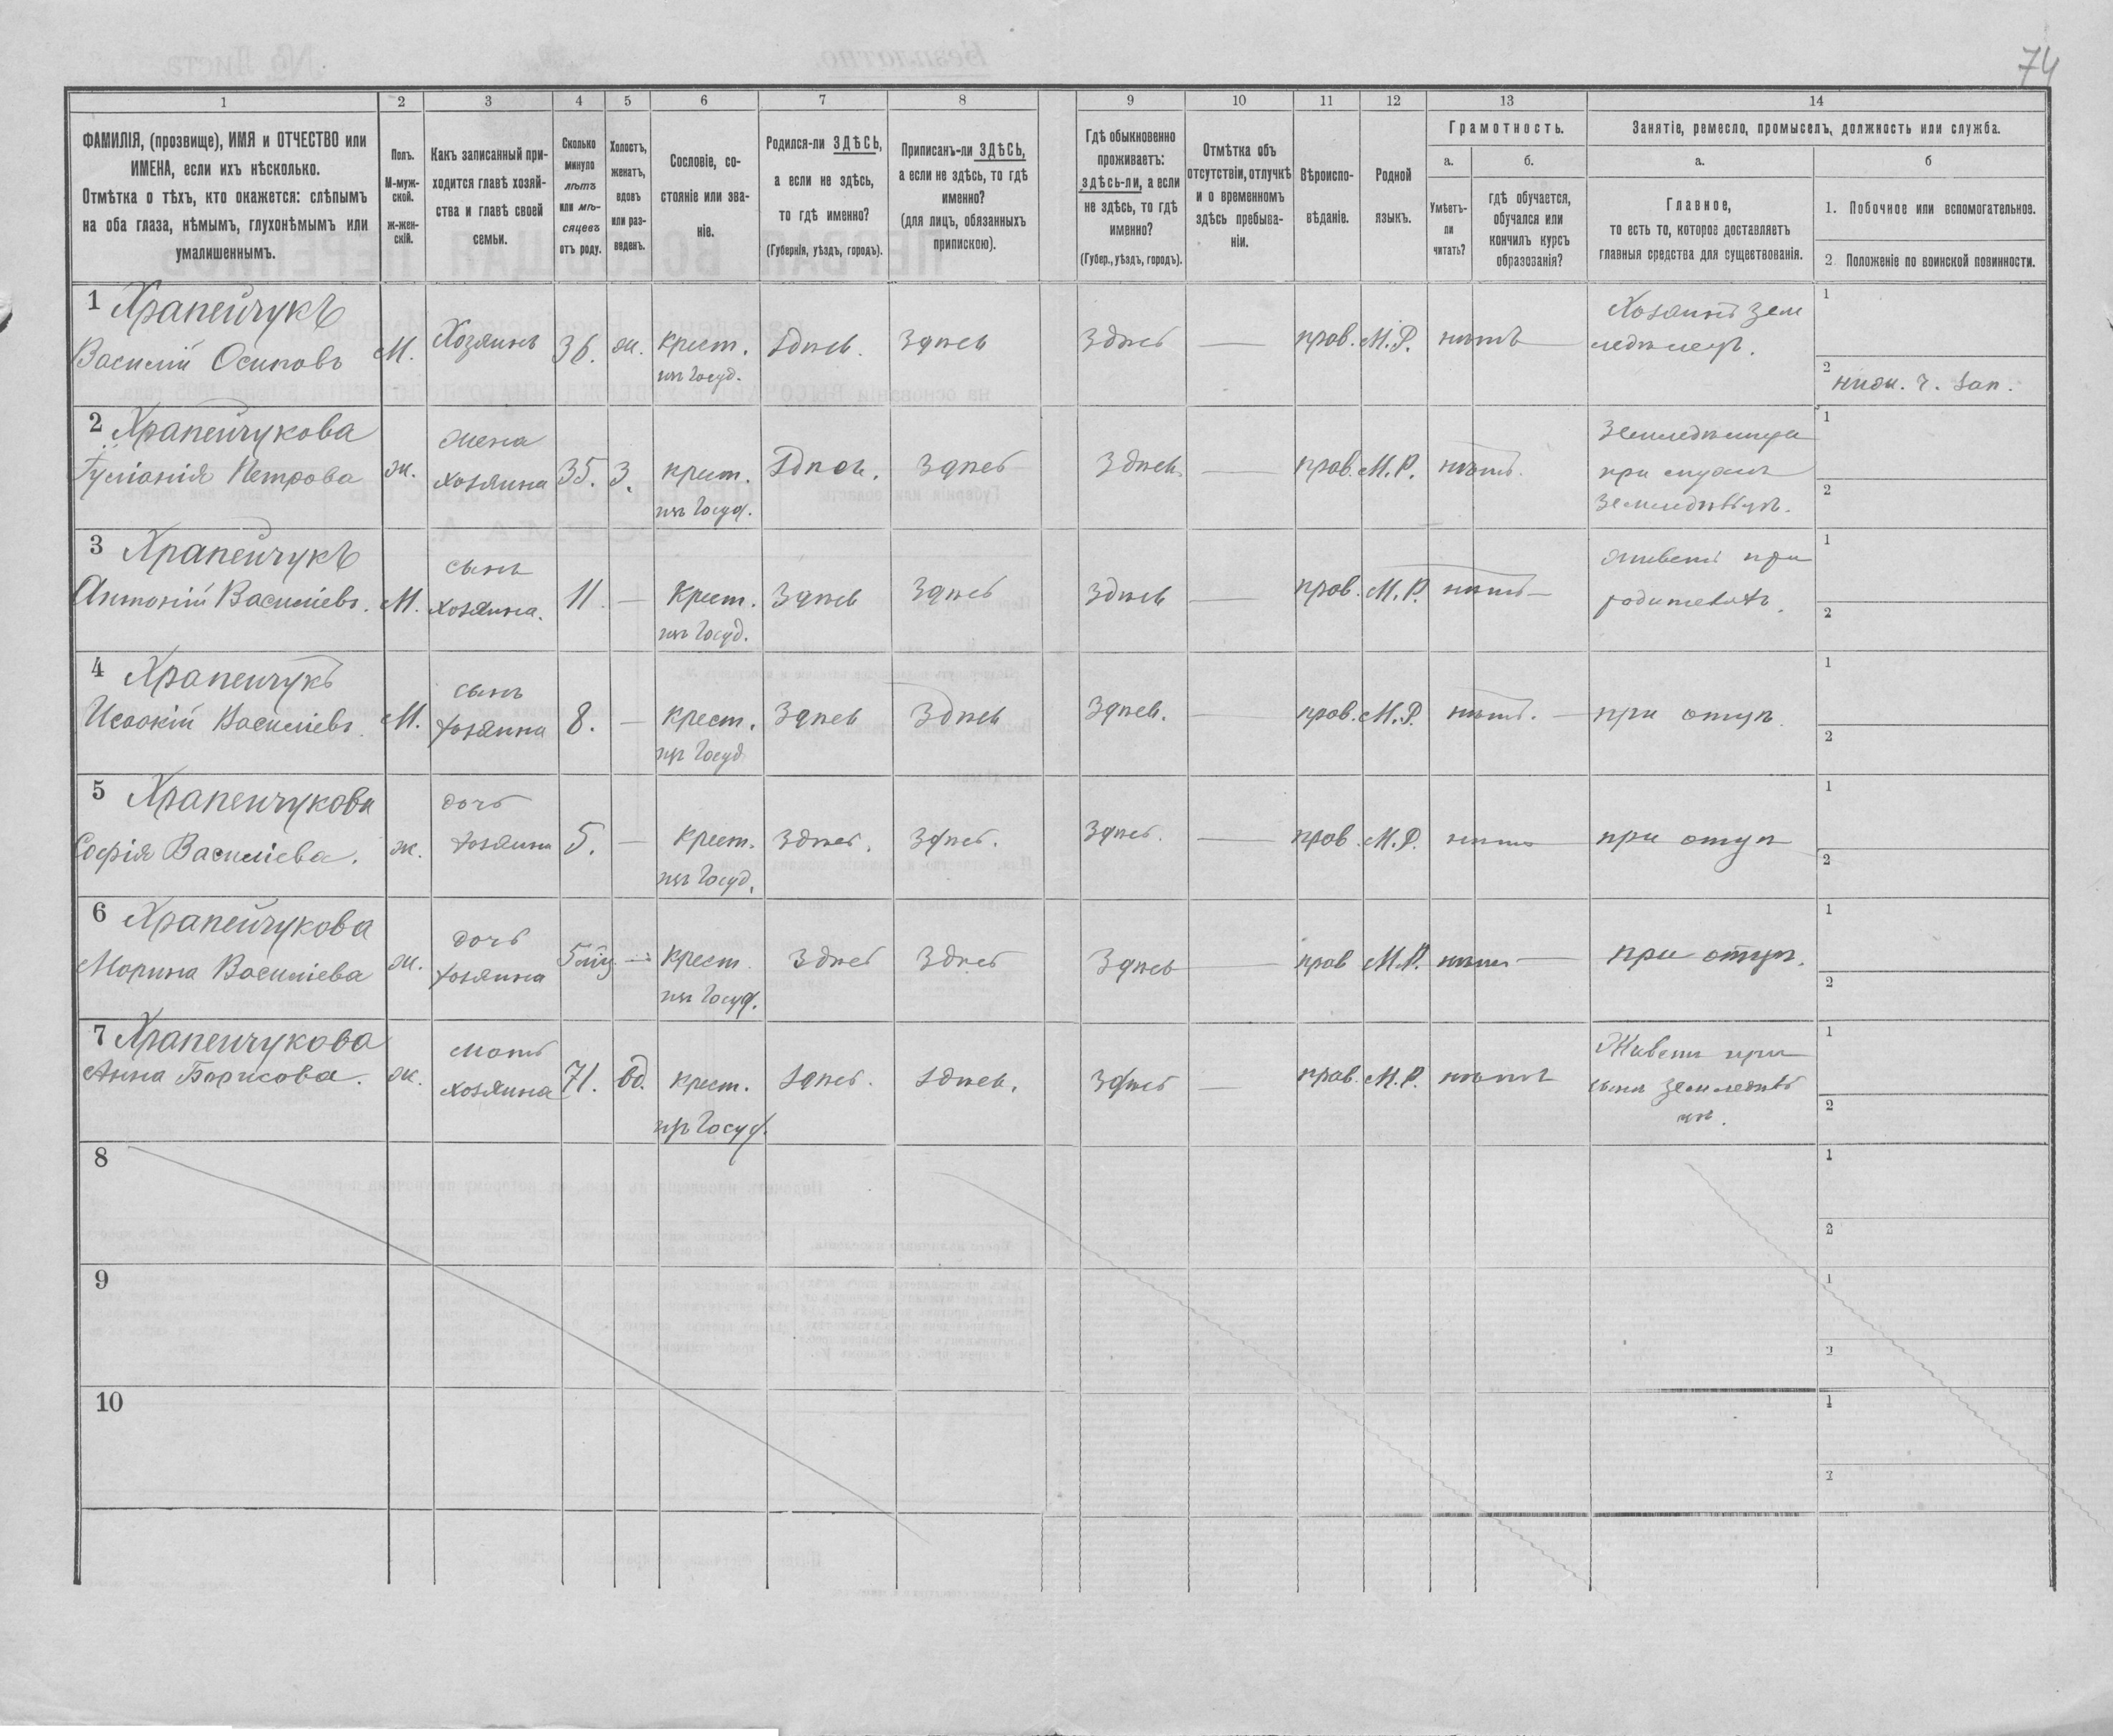 74
1 2 3 4 5 6 7 8 9 10 11 12 13 14
ФАМИЛІЯ, (прозвище), ИМЯ и ОТЧЕСТВО или
ИМЕНА, если ихъ нѣсколько.
Отмѣтка о тѣхъ, кто окажется: слѣпымъ
на оба глаза, нѣмымъ, глухонѣмымъ или
умалишеннымъ.
Полъ.
М-муж-
ской.
ж-жен-
скій.
Какъ записанный при-
ходится главѣ хозяй-
ства и главѣ своей
семьи.
Сколько
минуло
лѣтъ
или мѣ-
сяцевъ
отъ роду.
Холостъ,
женатъ,
вдовъ
или раз-
веденъ.
Сословіе, со-
стояніе или зва-
ніе.
Родился-ли ЗДѢСЬ,
а если не здѣсь,
то гдѣ именно?
(Губернія, уѣздъ, городъ).
Приписанъ-ли ЗДѢСЬ,
а если не здѣсь, то гдѣ
именно?
(для лицъ, обязанныхъ
припискою).
Гдѣ обыкновенно
проживаетъ:
здѣсь-ли, а если
не здѣсь, то гдѣ
именно?
(Губер., уѣздъ, городъ).
Отмѣтка объ
отсутствіи, отлучкѣ
и о временномъ
здѣсь пребыва-
ніи.
Вѣроиспо-
вѣданіе.
Родной
языкъ.
Грамотность.
а.
Умѣетъ-
ли
читать?
б.
гдѣ обучается,
обучался или
кончилъ курсъ
образованія?
Занятіе, ремесло, промыселъ, должность или служба.
а.
Главное,
то есть то, которое доставляетъ
главныя средства для существованія.
б
1. Побочное или вспомогательное.
2. Положеніе по воинской повинности.
1 Храпейчукъ
Василій Осиповъ
М.
Хозяинъ
36.
ж.
крест.
изъ Госуд.
здѣсь.
здѣсь
здѣсь
—
прав.
М.Р.
нѣтъ —
Хозяинъ зем
ледѣлецъ.
1
2
2 Храпейчукова
Петрова
ж.
жена
хозяина
35.
З.
крест.
изъ Госуд.
здѣсь.
здѣсь
здѣсь
—
прав.
М.Р.
нѣтъ.
при мужѣ
1
2
3 Храпейчукъ
Антоній Василіевъ.
М.
сынъ
хозяина.
11.
—
крест.
изъ Госуд.
здѣсь
здѣсь
здѣсь
—
прав.
М.Р.
нѣтъ —
живетъ при
родителяхъ.
1
2
4 Храпейчукъ
Исаакій Василіевъ.
М.
сынъ
хозяина
8.
—
крест.
изъ Госуд
здѣсь
здѣсь
здѣсь.
—
прав.
М.Р.
нѣтъ. —
при отцѣ.
1
2
5 Храпейчукова
Софія Василіева.
ж.
дочь
хозяина
5.
—
крест.
изъ Госуд.
здѣсь.
здѣсь.
здѣсь.
—
прав.
М.Р.
нѣтъ —
при отцѣ
1
2
6 Храпейчукова
Марина Василіева
ж.
дочь
хозяина
—
крест.
изъ Госуд.
здѣсь
здѣсь
здѣсь
—
прав
М.Р.
нѣтъ —
при отцѣ.
1
2
7 Храпейчукова
Анна Борисова.
ж.
мать
хозяина
71.
вд.
крест.
изъ Госуд.
здѣсь.
здѣсь.
здѣсь
—
прав.
М.Р.
нѣтъ
Живетъ при
сынѣ земледѣль
цѣ.
1
2
8
1
2
9
1
2
10
1
2